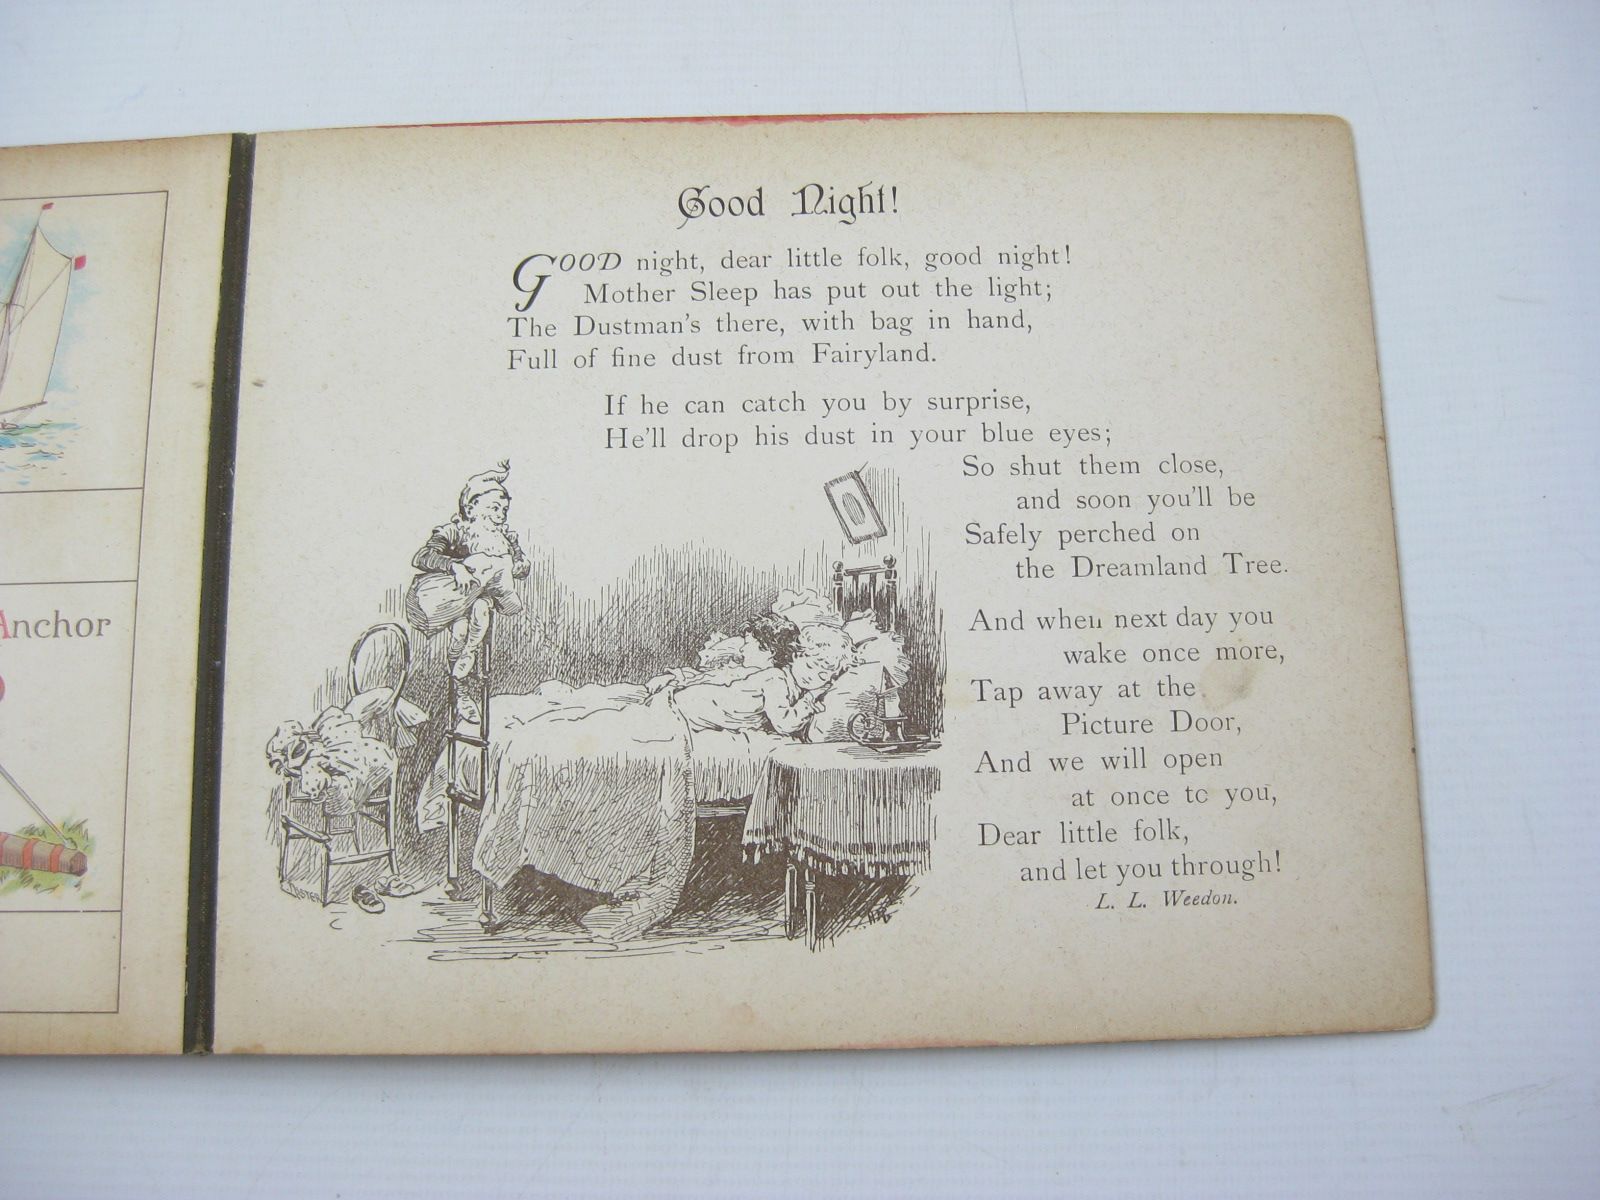 Anchor
Good Night!
GOOD night, dear little folk, good night!
Mother Sleep has put out the light;
The Dustman's there, with bag in hand,
Full of fine dust from Fairyland.
If he can catch you by surprise,
He'll drop his dust in your blue eyes;
So shut them close,
and soon you'll be
Safely perched on
the Dreamland Tree.
And when next day you
wake once more,
Tap away at the
Picture Door,
And we will open
at once to you,
Dear little folk,
and let you through!
L. L. Weedon.